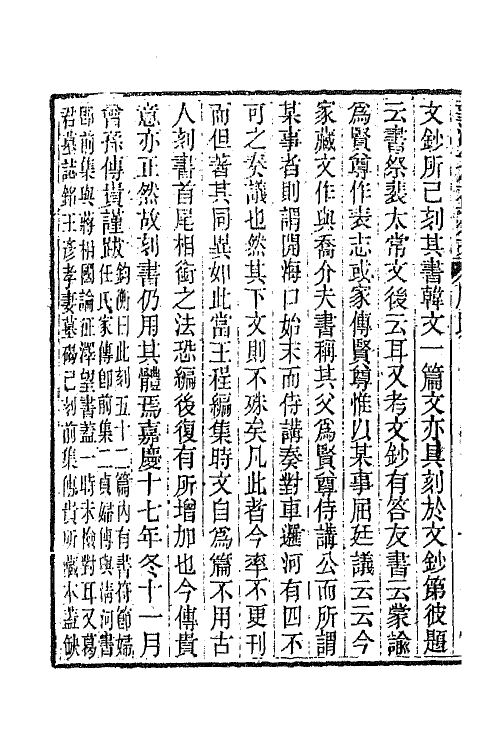 文鈔所已刻其書韓文一篇文亦具刻於文鈔第彼題
云書祭裴太常文後云耳又考文鈔有答友書云蒙諭
爲賢尊作表志或家傳賢尊惟以某事屈廷議云云今
家藏文作與喬介夫書稱其父爲賢尊侍講公而所謂
某事者則謂開海口始末而侍講奏對車邏河有四不
可之奏議也然其下文則不殊矣凡此者今率不更刊
而但著其同異如此當王程編集時文自爲篇不用古
人刻書首尾相銜之法恐編後復有所增加也今傳貴
意亦正然故刻書仍用其體焉嘉慶十七年冬十一月
曾孫傳貴謹跋鈞衡曰此刻五十二篇內有書符節婦
任氏家傳卽前集二貞婦傳與淸河書
卽前集與蔣相國論征澤望書蓋一時未檢對耳又葛
君墓誌銘王彦孝妻墓碣已刻前集傳貴所藏本蓋缺